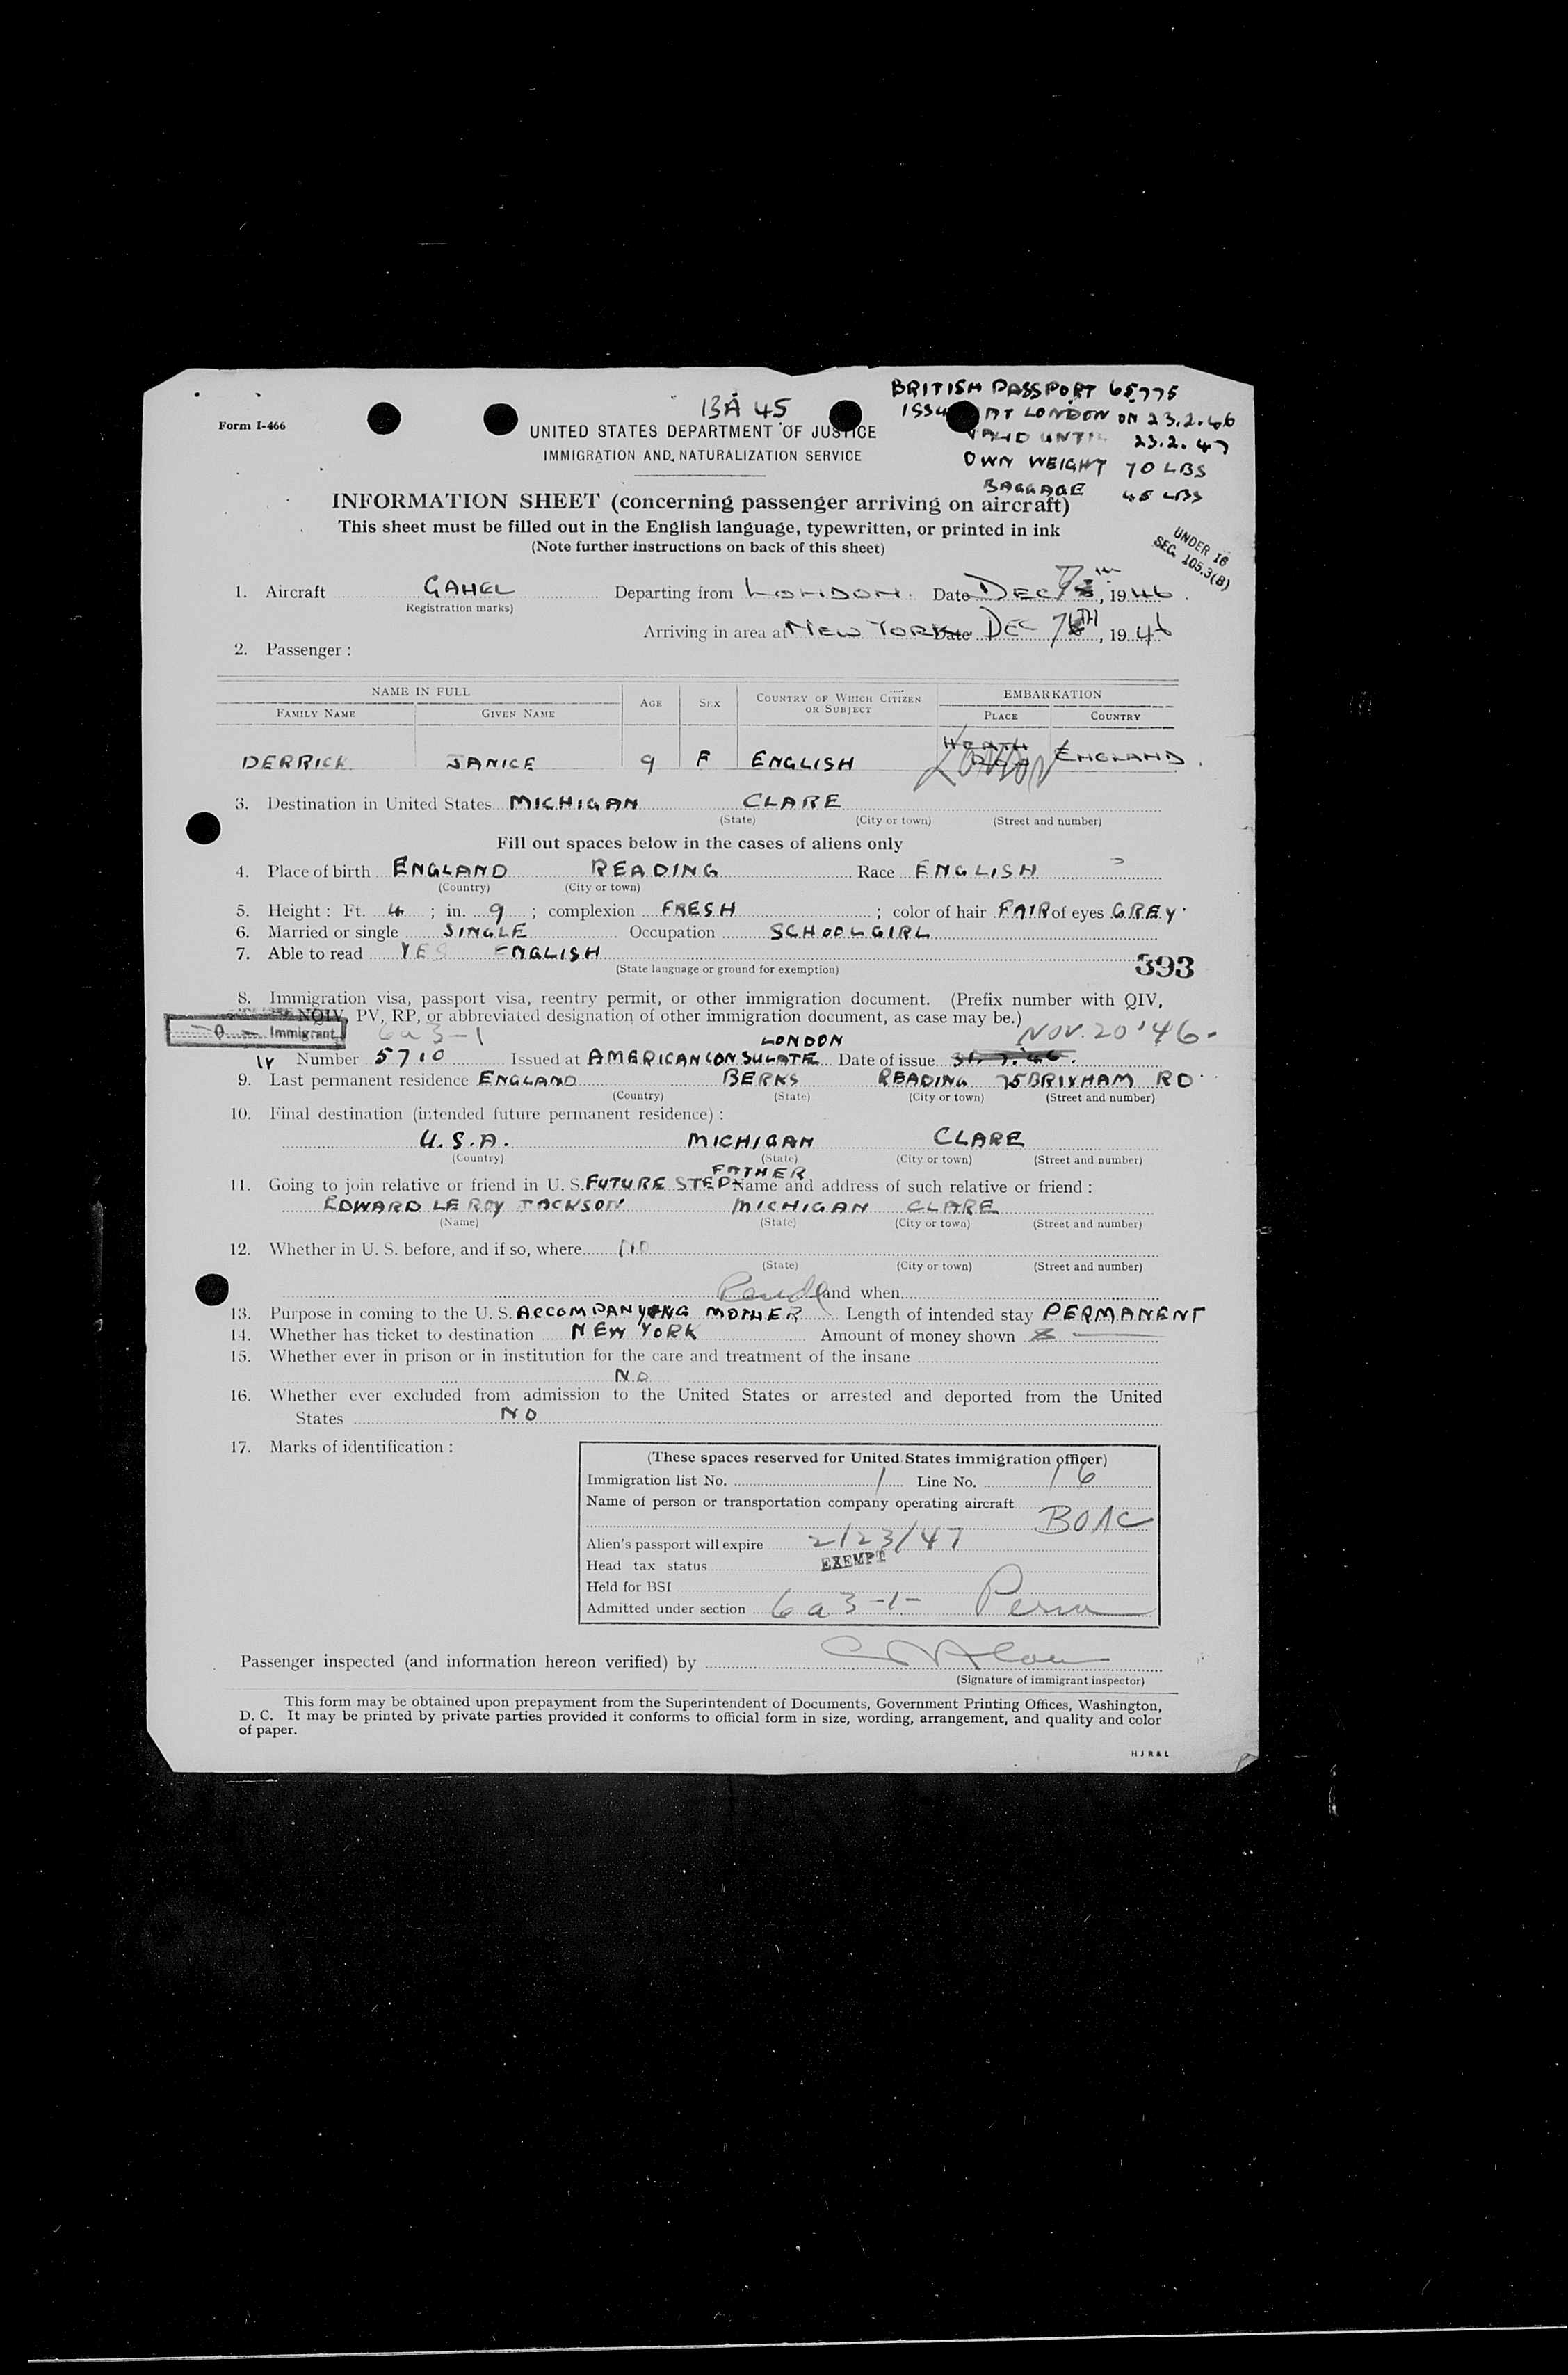 BRITISH PASSPORT 65775
BA 45
AT LONDON ON 23.2.46
Form I-466
UNITED STATES DEPARTMENT OF JUSTICE
VALID UNTIL 23.2.47
IMMIGRATION AND NATURALIZATION SERVICE
OWN WEIGHT 70 LBS
BAGGAGE 45 LBS
INFORMATION SHEET (concerning passenger arriving on aircraft)
This sheet must be filled out in the English language, typewritten, or printed in ink
(Note further instructions on back of this sheet)
UNDER 16
SEC. 105.3(B)
1. Aircraft GAHEL Departing from LONDON. Date DEC , 1946
(Registration marks)
Arriving in area at NEW YORK Date DEC , 1946
2. Passenger :
NAME IN FULL AGE SEX COUNTRY OF WHICH CITIZEN OR SUBJECT EMBARKATION
FAMILY NAME GIVEN NAME PLACE COUNTRY
HEATH
DERRICK JANICE 9 F ENGLISH LONDON ENGLAND
3. Destination in United States MICHIGAN CLARE
(State) (City or town) (Street and number)
Fill out spaces below in the cases of aliens only
4. Place of birth ENGLAND READING Race ENGLISH
(Country) (City or town)
5. Height : Ft. 4 ; in. 9 ; complexion FRESH ; color of hair FAIR of eyes GREY
6. Married or single SINGLE Occupation SCHOOLGIRL
7. Able to read YES ENGLISH
(State language or ground for exemption)
393
8. Immigration visa, passport visa, reentry permit, or other immigration document. (Prefix number with QIV,
NQIV, PV, RP, or abbreviated designation of other immigration document, as case may be.)
Immigrant 6a3-1 NOV. 20 '46-
LONDON
IV Number 5710 Issued at AMERICAN CONSULATE Date of issue
9. Last permanent residence ENGLAND BERKS READING 75 BRIXHAM RD
(Country) (State) (City or town) (Street and number)
10. Final destination (intended future permanent residence) :
U.S.A. MICHIGAN CLARE
(Country) (State) (City or town) (Street and number)
FATHER
11. Going to join relative or friend in U. S. FUTURE STEP Name and address of such relative or friend :
EDWARD LE ROY JACKSON MICHIGAN CLARE
(Name) (State) (City or town) (Street and number)
12. Whether in U. S. before, and if so, where NO
(State) (City or town) (Street and number)
and when
13. Purpose in coming to the U. S. ACCOMPANYING MOTHER Length of intended stay PERMANENT
14. Whether has ticket to destination NEW YORK Amount of money shown
15. Whether ever in prison or in institution for the care and treatment of the insane
NO
16. Whether ever excluded from admission to the United States or arrested and deported from the United
States NO
17. Marks of identification :
(These spaces reserved for United States immigration officer)
Immigration list No. 1 Line No. 16
Name of person or transportation company operating aircraft
BOAC
Alien's passport will expire 2/23/47
Head tax status EXEMPT
Held for BSI
Admitted under section 6a3-1- Perm
Passenger inspected (and information hereon verified) by
(Signature of immigrant inspector)
This form may be obtained upon prepayment from the Superintendent of Documents, Government Printing Offices, Washington,
D. C. It may be printed by private parties provided it conforms to official form in size, wording, arrangement, and quality and color
of paper.
H J R & L